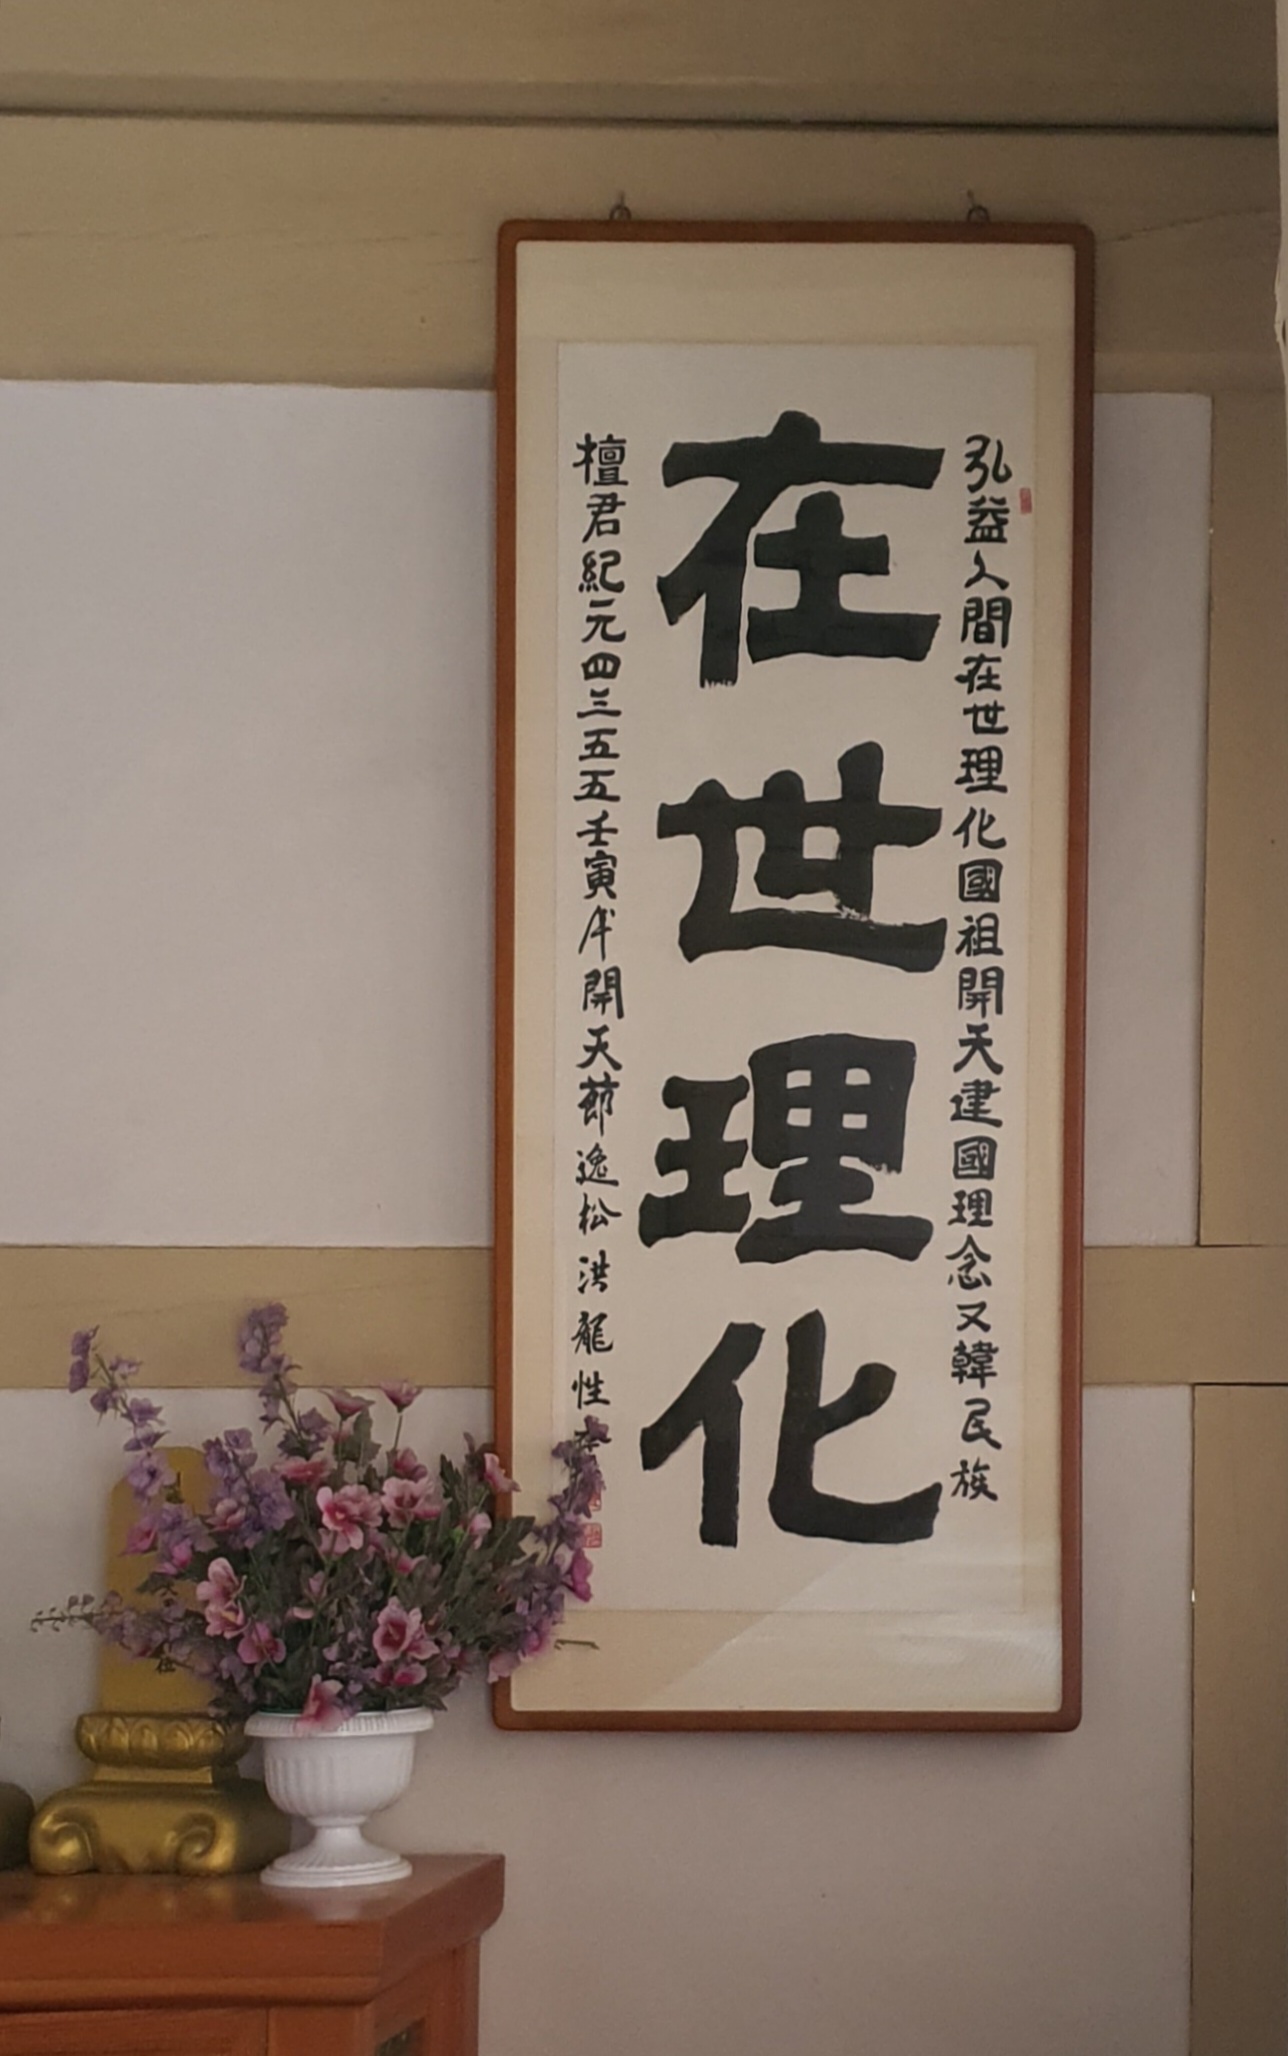 弘益人間在世理化國祖開天建國理念又韓民族
在世理化
檀君紀元四三五五壬寅年開天節逸松洪龍性